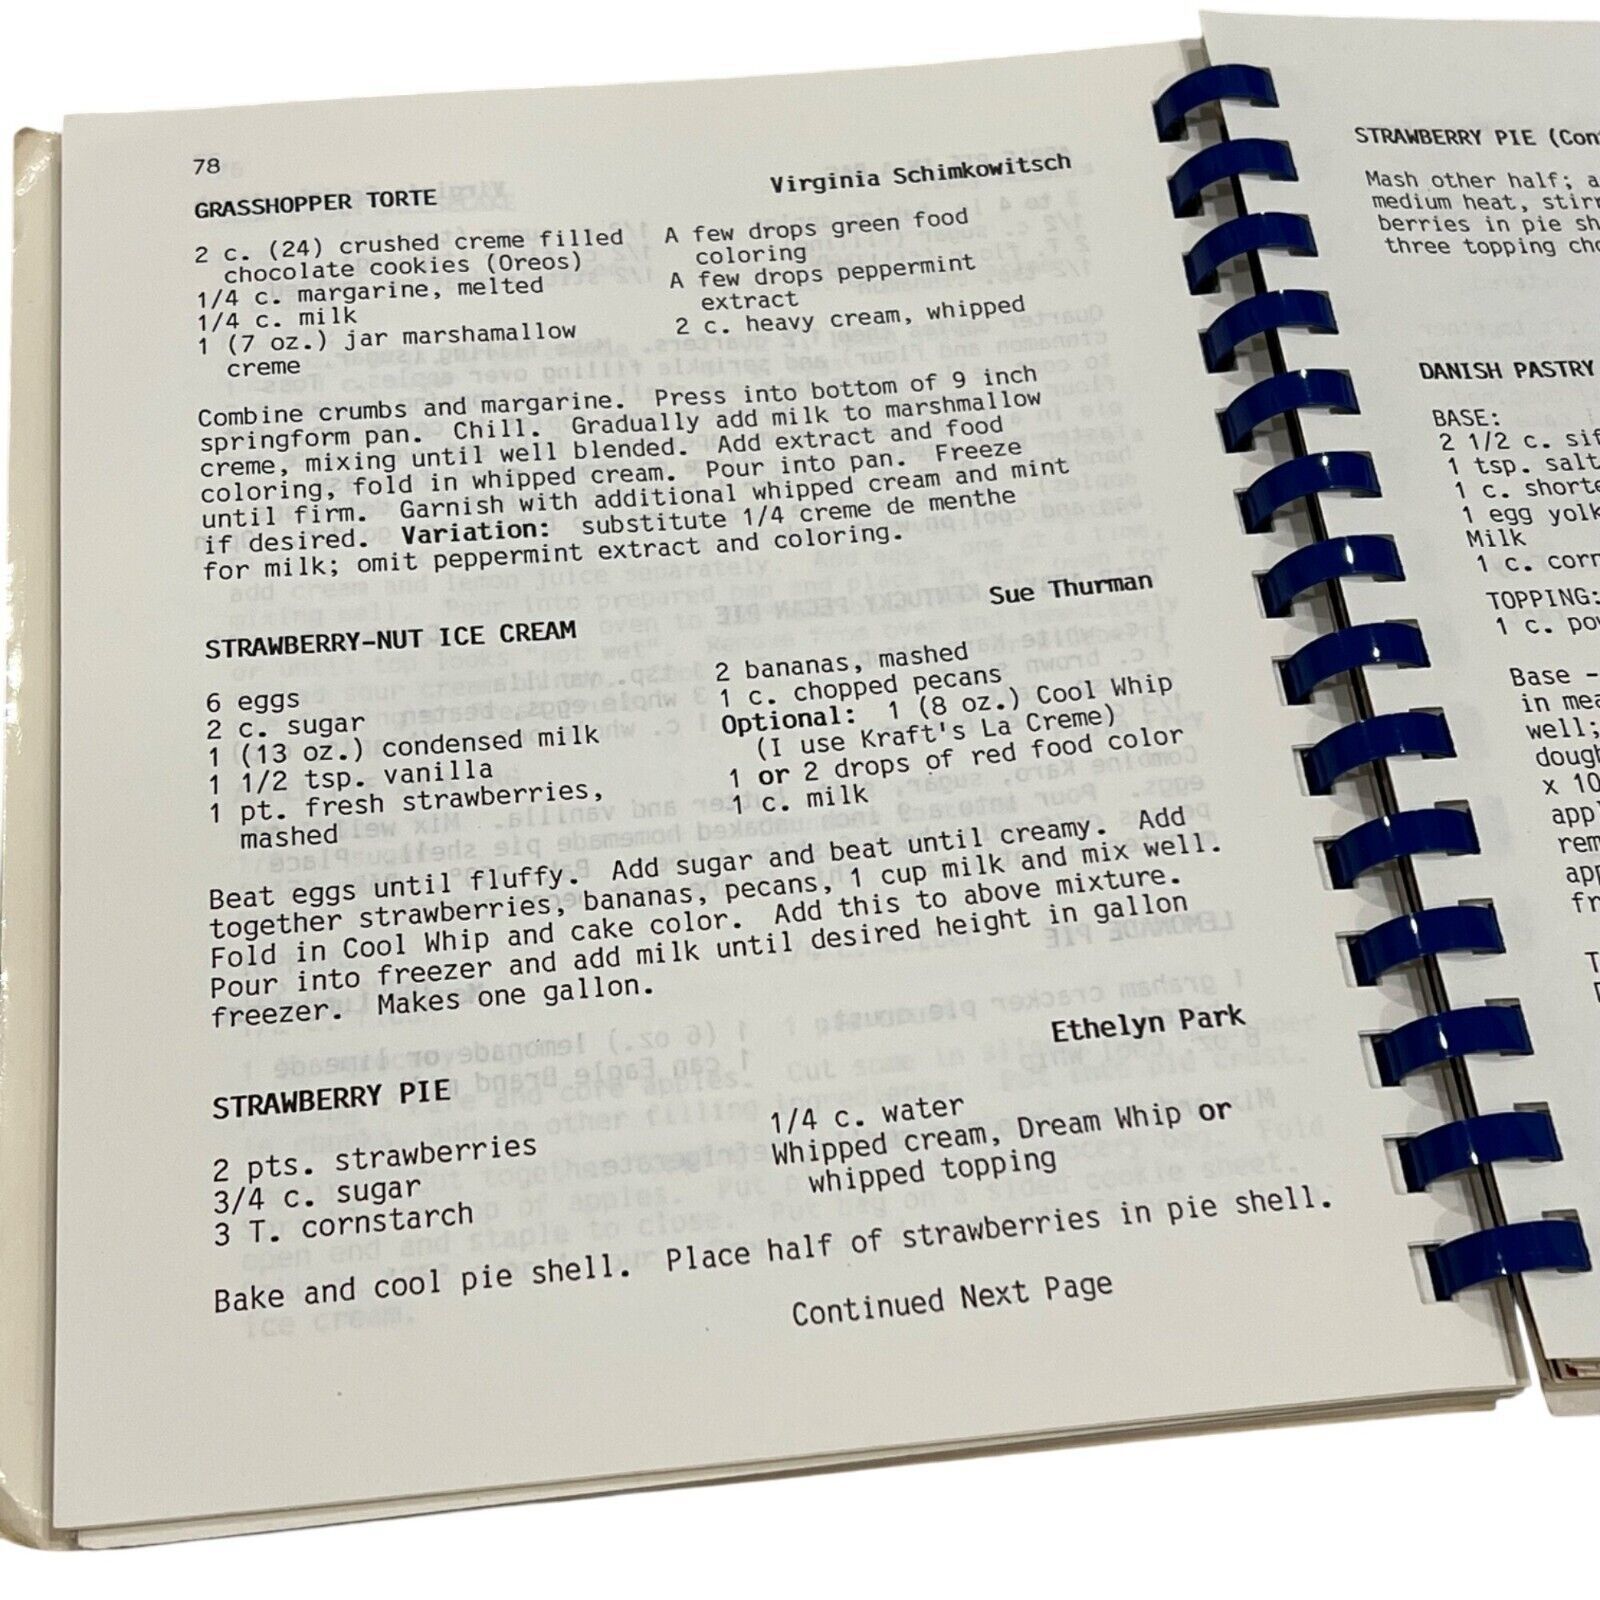 78
GRASSHOPPER TORTE
Virginia Schimkowitsch
2 c. (24) crushed creme filled
chocolate cookies (Oreos)
1/4 c. margarine, melted
1/4 c. milk
1 (7 oz.) jar marshamallow
creme
A few drops green food
coloring
A few drops peppermint
extract
2 c. heavy cream, whipped
Combine crumbs and margarine. Press into bottom of 9 inch
springform pan. Chill. Gradually add milk to marshmallow
creme, mixing until well blended. Add extract and food
coloring, fold in whipped cream. Pour into pan. Freeze
until firm. Garnish with additional whipped cream and mint
if desired. Variation: substitute 1/4 creme de menthe
for milk; omit peppermint extract and coloring.
Sue Thurman
STRAWBERRY-NUT ICE CREAM
6 eggs
2 c. sugar
1 (13 oz.) condensed milk
1 1/2 tsp. vanilla
1 pt. fresh strawberries,
mashed
2 bananas, mashed
1 c. chopped pecans
Optional: 1 (8 oz.) Cool Whip
(I use Kraft's La Creme)
1 or 2 drops of red food color
1 c. milk
Beat eggs until fluffy. Add sugar and beat until creamy. Add
together strawberries, bananas, pecans, 1 cup milk and mix well.
Fold in Cool Whip and cake color. Add this to above mixture.
Pour into freezer and add milk until desired height in gallon
freezer. Makes one gallon.
Ethelyn Park
STRAWBERRY PIE
2 pts. strawberries
3/4 c. sugar
3 T. cornstarch
1/4 c. water
Whipped cream, Dream Whip or
whipped topping
Bake and cool pie shell. Place half of strawberries in pie shell.
Continued Next Page
STRAWBERRY PIE (Con
Mash other half; a
medium heat, stirr
berries in pie sh
three topping cho
DANISH PASTRY
BASE:
2 1/2 c. sif
1 tsp. salt
1 c. shorte
1 egg yolk
Milk
1 c. corn
TOPPING:
1 c. pow
Base -
in mea
well;
dough
x 10
app
rem
app
fr